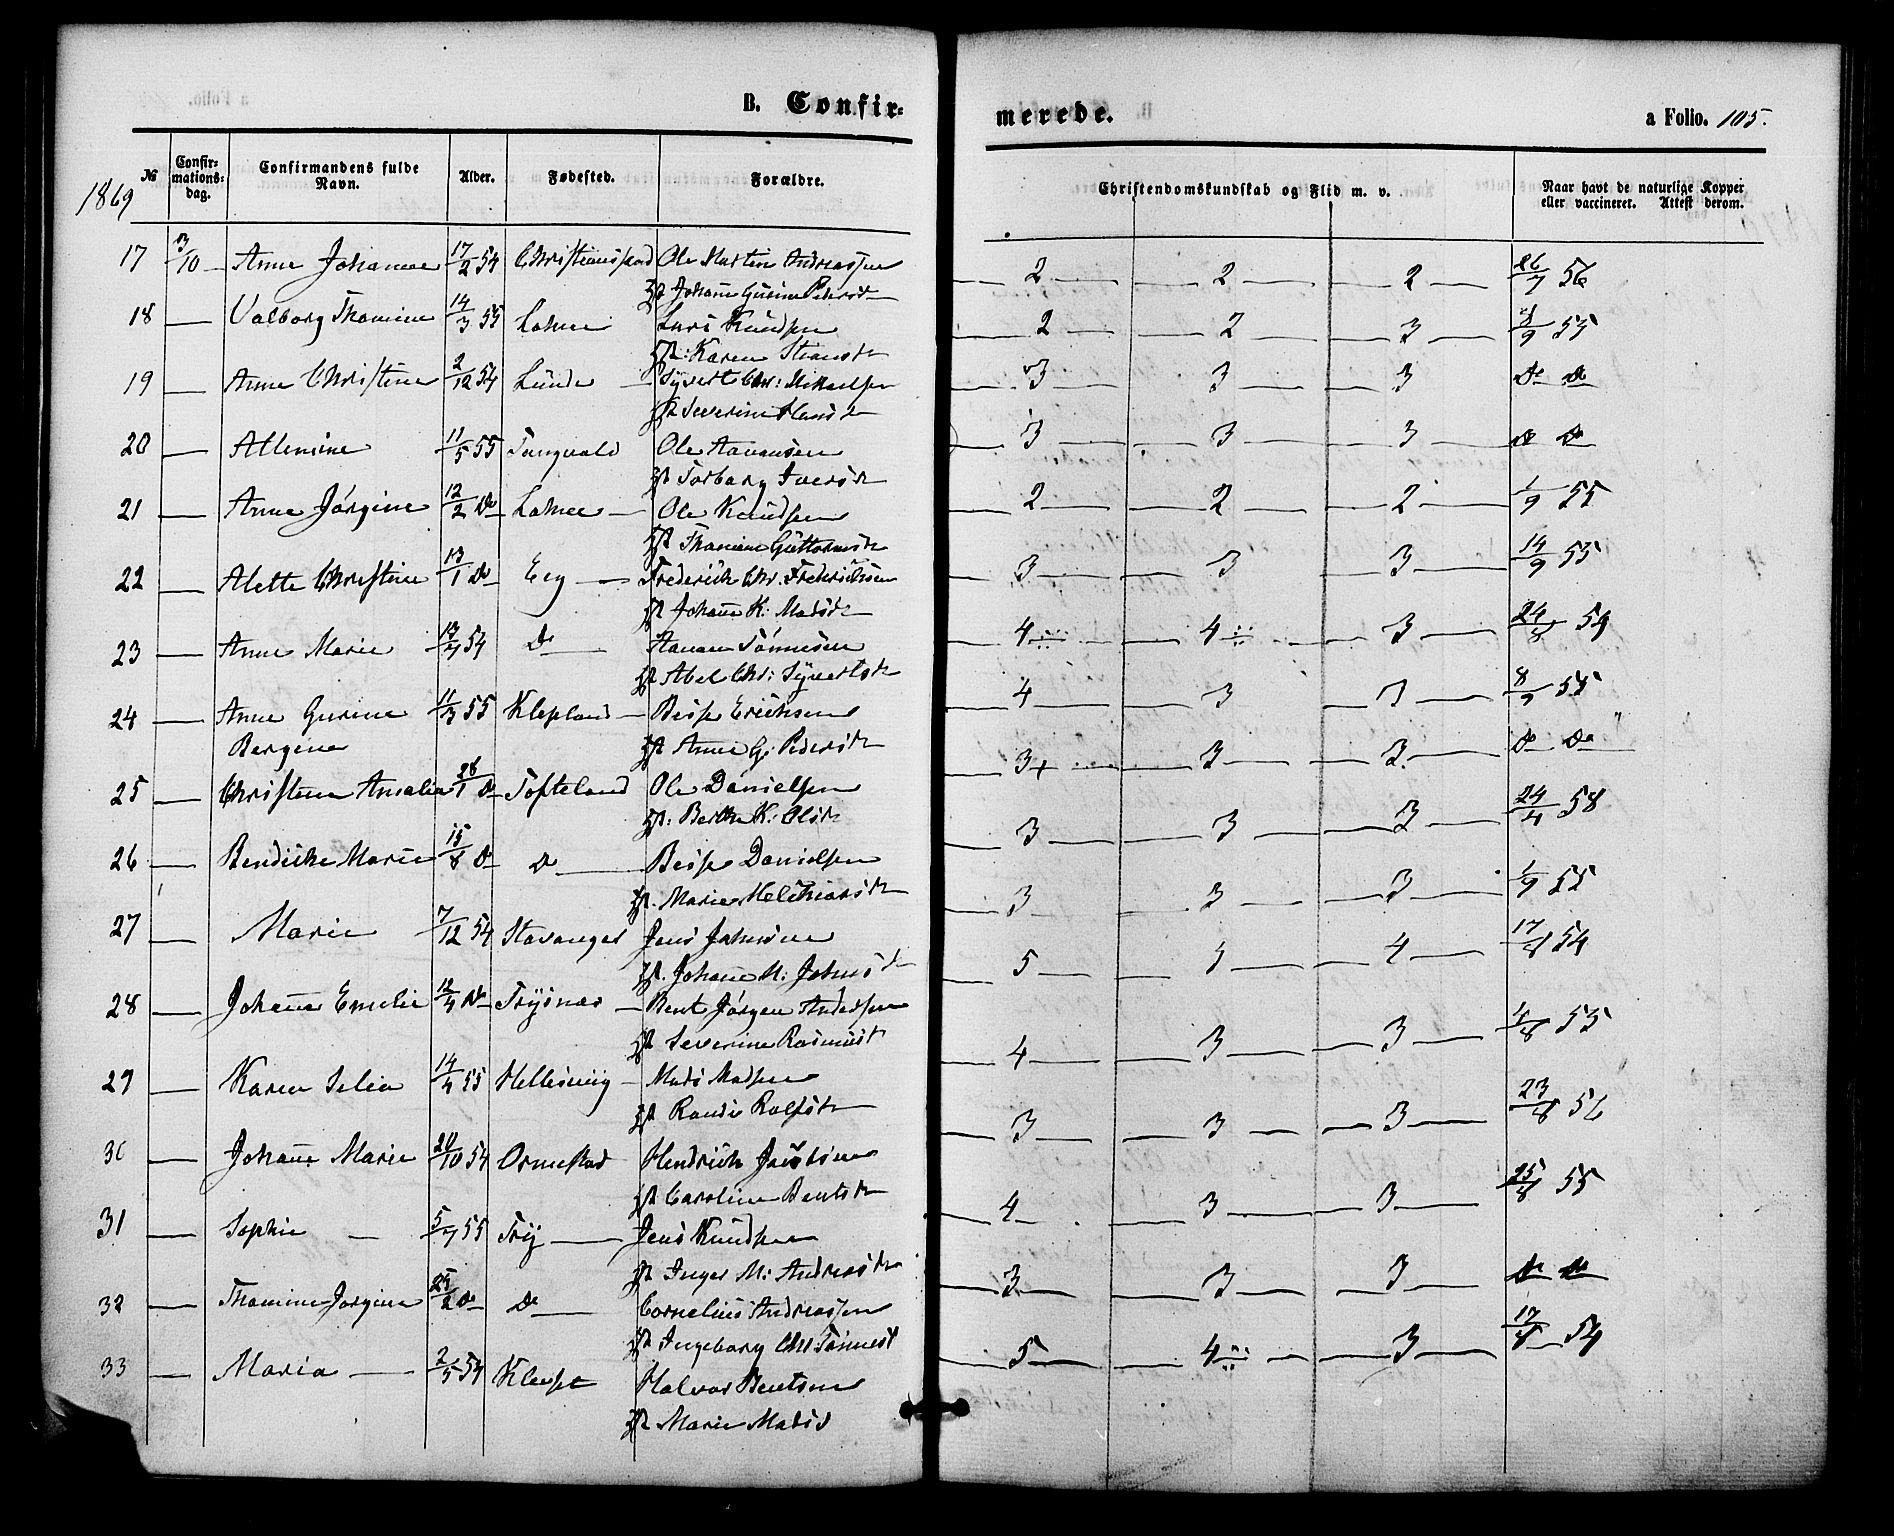 B. Confir=
merede.
a Folio. 105.
1869
№ Confir=mations=dag. Confirmandens fulde Navn. Alder. Fødested. Forældre. Christendomskundskab og Flid m. v. Naar havt de naturlige Kopper eller vaccineret. Attest derom.
17 3/10 — Anne Johanne 17/2 54 Christiansstad Ole Martin Andreassen — 2 — 2 — 2 — 26/7 56
Johanne Gurine Pedersdr
18 — Valborg Thomine 14/3 55 Lohne Lars Knudsen — 2 — 2 — 3 — /9 55
Karen Stiansdr
19 — Anne Christine 2/12 54 Lunde — Syvert Chr: Mikaelsen — 3 — 3 — 3 — Do Do
Severine Hansdr
20 — Allemine 11/5 55 Tangvald Ole Aanansen — 3 — 3 — 3 — Do Do
Torborg Iversdr
21 — Anne Jørgine 12/2 Do Lohne — Ole Knudsen — 2 — 2 — 2 — 1/9 55
Thomine Guttormsdr
22 — Alette Christine 13/1 Do Eeg — Frederich Chr. Frederichsen — 3 — 3 — 3 — 14/9 55
Johanne K: Madsdr
23 — Anne Marie 13/7 54 Do — Aanan Tønnesen — 4 — 4 — 3 — 24/8 54
Abel Chr: Syvertsdr
24 — Anne Gurine 11/3 55 Klepland — Berse Erichsen — 4 — 3 — 3 — 8/9 55
Bergine Anne G. Pedersdr
25 — Christine Amalia 28/1 Do Tofteland Ole Danielsen — 3+ — 3 — 3 — Do Do
Berthe K: Olsdr
26 — Bendikke Marie 15/8 Do Do — Berse Danielsen — 3 — 3 — 3 — 24/4 58
Marie Melchiorsdr
27 — Marie 7/12 54 Stavanger Jens Johnsen — 3 — 3 — 3 — 1/9 55
Johanne M: Johnsdr
28 — Johanne Emelie 12/4 Do Trysnæs — Bent Jørgen Andersen — 5 — — 4 — 17/8 54
Severine Rasmusd
29 — Karen Selia 14/4 55 Hellesvig — Mads Madsen — 4 — 3 — 3 — /8 55
Randi Rolfsdr
30 — Johanne Marie 20/10 54 Ormestad Hendrich Jacobsen — 3 — 3 — 3 — 23/8 56
Caroline Bentsdr
31 — Sophie — 5/7 55 Try — Jens Knudsen — 4 — 3 — 3 — 25/8 55
Inger M: Andreasdr
32 — Thomine Jørgine 25/2 Do Do — Cornelius Andreassen — 3 — 3 — 3 — Do Do
Ingeborg Chr Tønnesd
33 — Maria — 2/5 54 Klepse Halvor Bentsen — 5 — 4 — 3 — 17/8 54
Marie Madsd